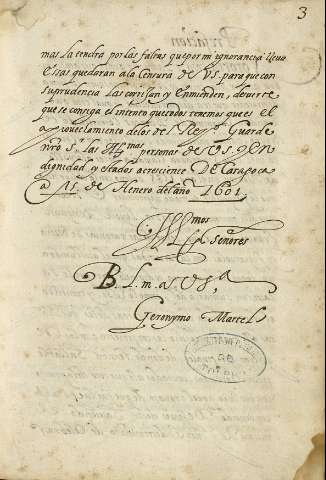 3
mas la tendra por las faltas que por mi ignorancia lleua
Essas quedaran a la Censura de VS. para que con
su prudencia las corrijan y Enmienden, de suerte
que se consiga el intento que todos tenemos que es el
aprouechamiento de los del Reyº. Guarde
nrõ Sr. las Illmas personas de VS. y en
dignidad y estados acresciente De Caragoça
a 15. de Henero del año 1601.
Illmos
Señores
B. l. m. a VSª
Geronymo Martel